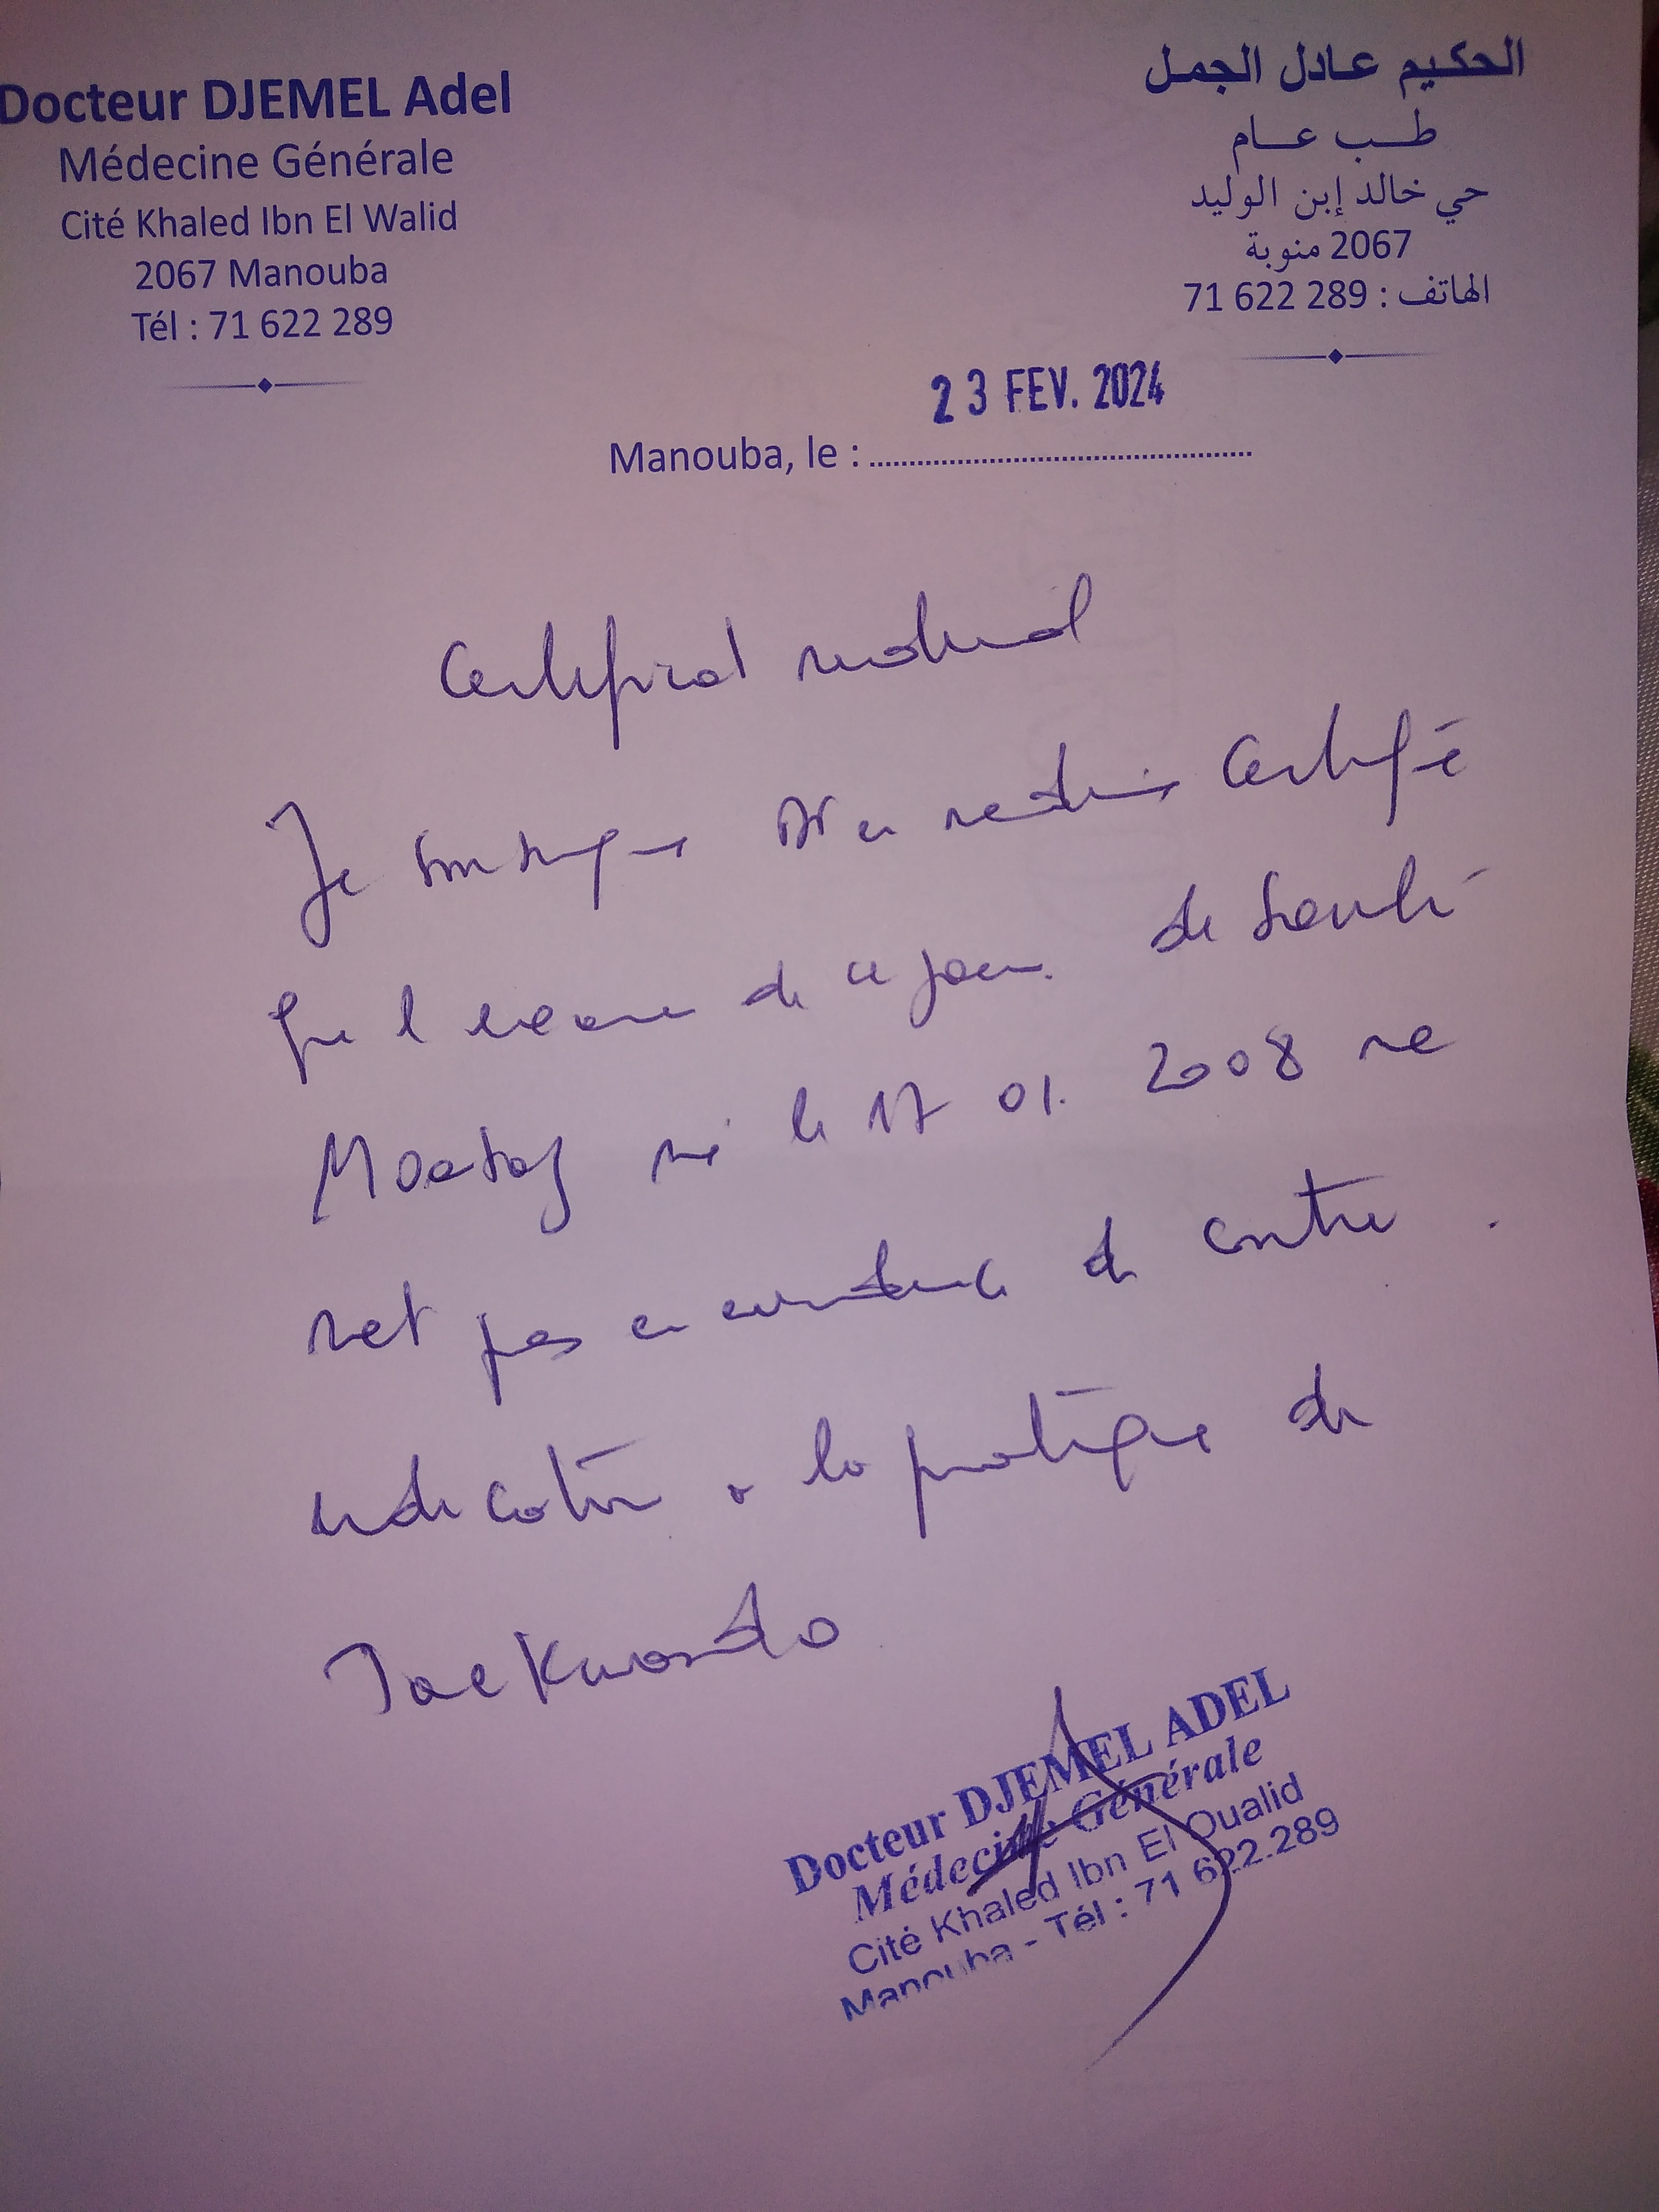 Docteur DJEMEL Adel
Médecine Générale
Cité Khaled Ibn El Walid
2067 Manouba
Tél : 71 622 289
الحكيم عادل الجمل
طب عام
حي خالد إبن الوليد
2067 منوبة
الهاتف : 71 622 289
23 FEV. 2024
Manouba, le :
Certificat médical
Je soussigné Dr en médecine certifie
que l examen de ce jour de
né le 17 01. 2008 ne
met pas en évidence de contre
indication a la pratique de
Taekwondo
Docteur DJEMEL ADEL
Médecine Générale
Cité Khaled Ibn El Oualid
Manouba - Tél : 71 622.289